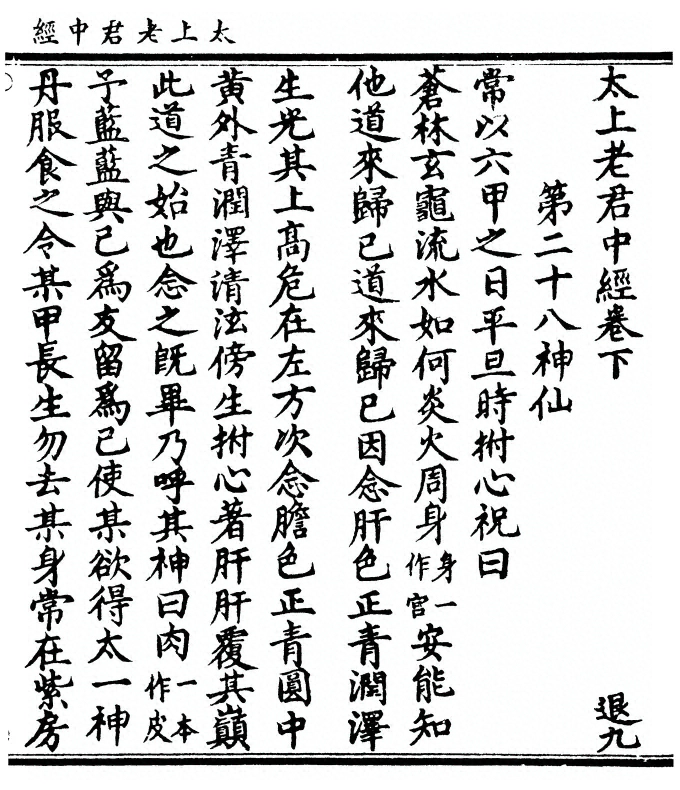 太上老君中經
太上老君中經卷下　退九
第二十八神仙
常以六甲之日平旦時拊心祝曰
蒼林玄竈流水如何炎火周身身一作宮安能知
他道來歸已道來歸已因念肝色正青潤澤
生光其上高危在左方次念膽色正青圓中
黃外青潤澤清泫傍生拊心著肝肝覆其巔
此道之始也念之旣畢乃呼其神曰肉一本作皮
子藍藍與已爲友留爲已使某欲得太一神
丹服食之令某甲長生勿去某身常在紫房